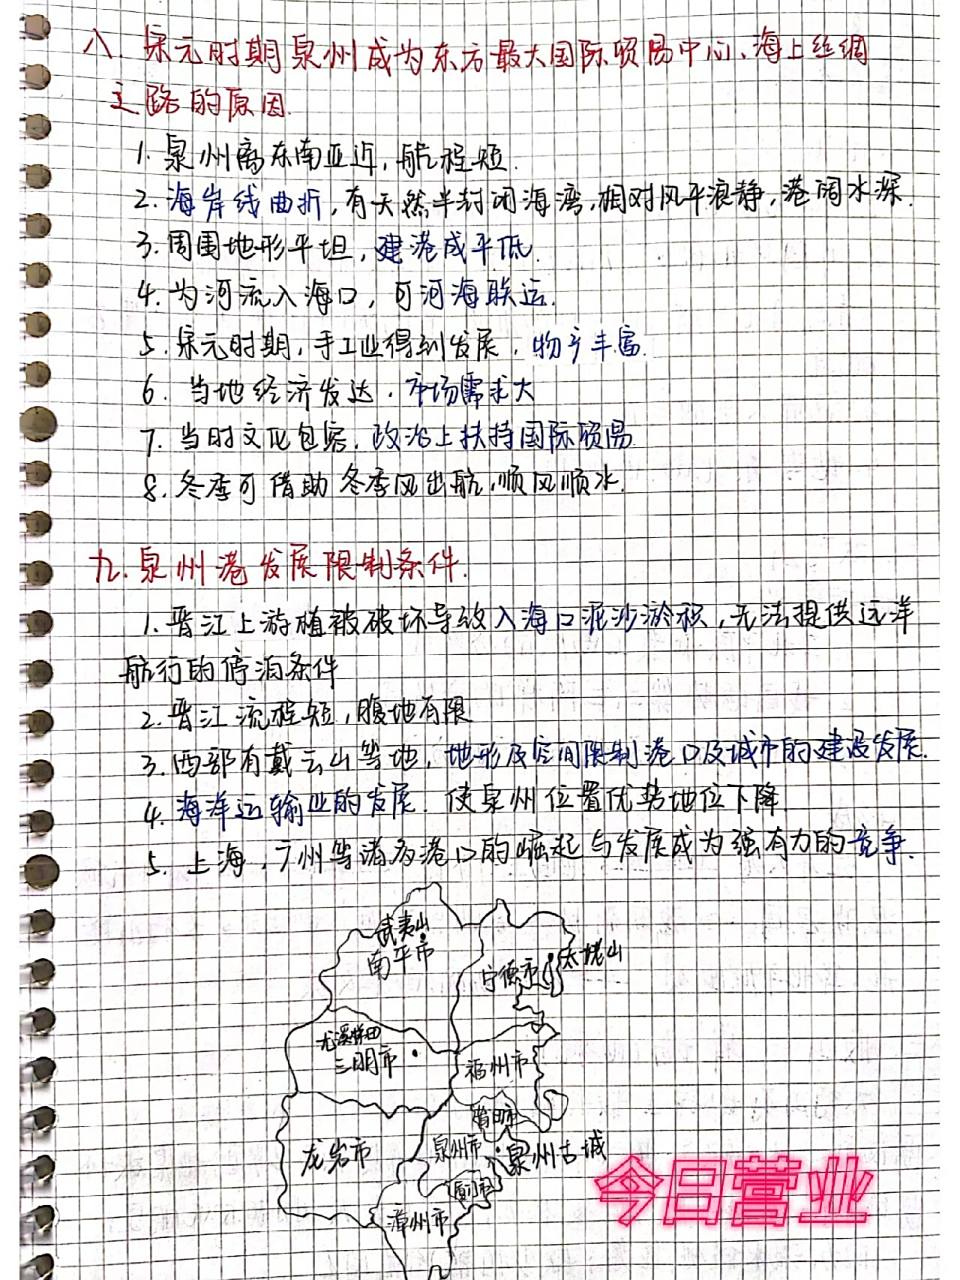 八.宋元时期泉州成为东方最大国际贸易中心、海上丝绸
之路的原因.
1.泉州离东南亚近,航程短.
2.海岸线曲折,有天然半封闭海湾,相对风平浪静,港阔水深.
3.周围地形平坦,建港成本低.
4.为河流入海口,可河海联运.
5.宋元时期,手工业得到发展,物产丰富.
6.当地经济发达.市场需求大
7.当时文化包容.政治上扶持国际贸易
8.冬季可借助冬季风出航,顺风顺水.
九.泉州港发展限制条件.
1.晋江上游植被破坏导致入海口泥沙淤积,无法提供远洋
航行的停泊条件
2.晋江流程短,腹地有限
3.西部有戴云山等地,地形及空间限制港口及城市的建设发展.
4.海洋运输业的发展.使泉州位置优势地位下降.
5.上海,广州等诸多港口的崛起与发展成为强有力的竞争.
武夷山
南平市
宁德市
太姥山
尤溪梯田
三明市
福州市
莆田市
龙岩市
泉州市
泉州古城
厦门市
漳州市
今日营业